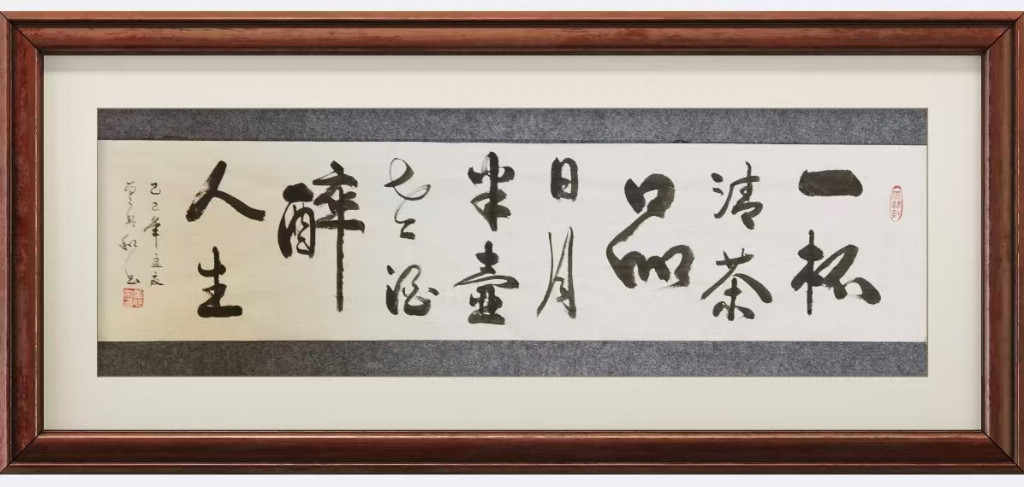 一杯
清茶
品
日月
半壶
老酒
醉
人生
乙巳年立夏
书